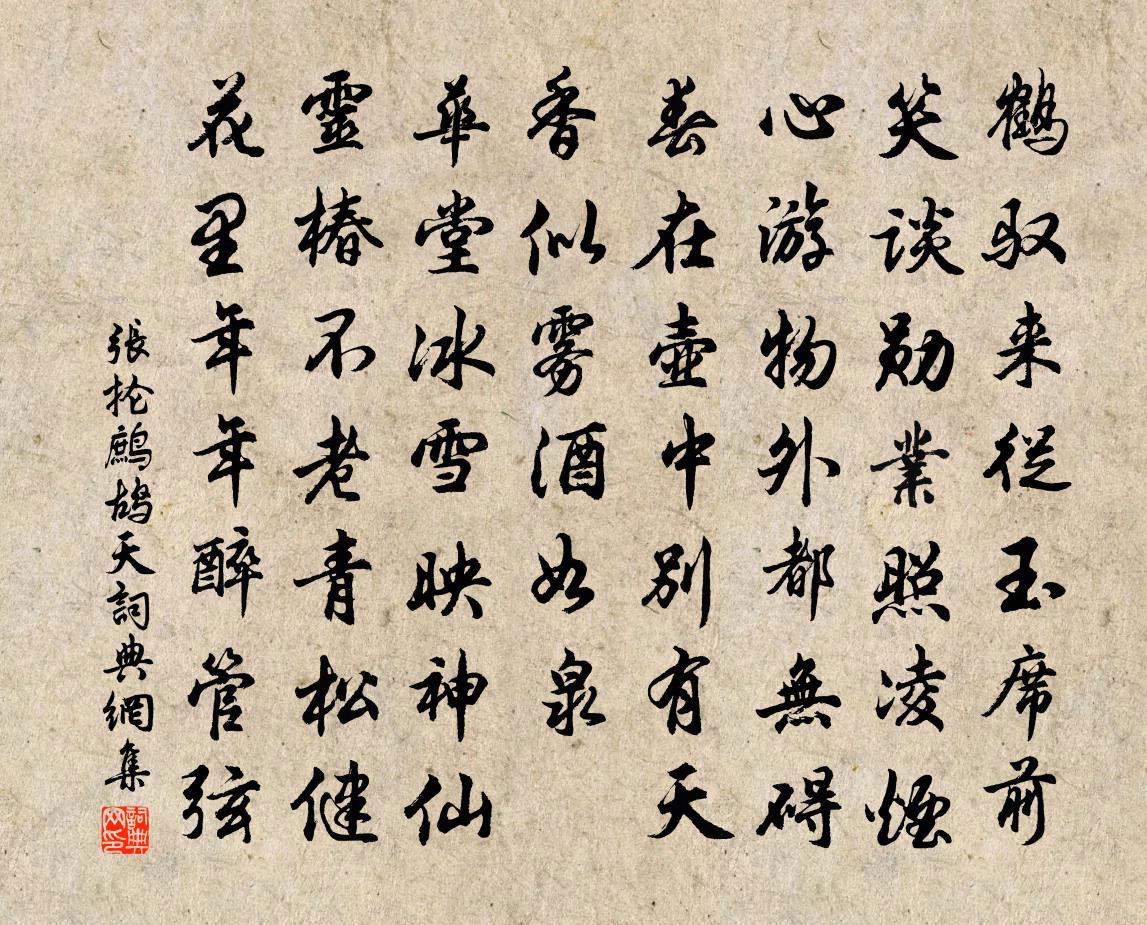 鹤驭来从玉席前
笑谈勋業照凌煙
心游物外都無碍
春在壶中别有天
香似雾酒如泉
華堂冰雪映神仙
靈椿不老青松健
花里年年醉管弦
張抡鷓鸪天詞典網集
詞典網印